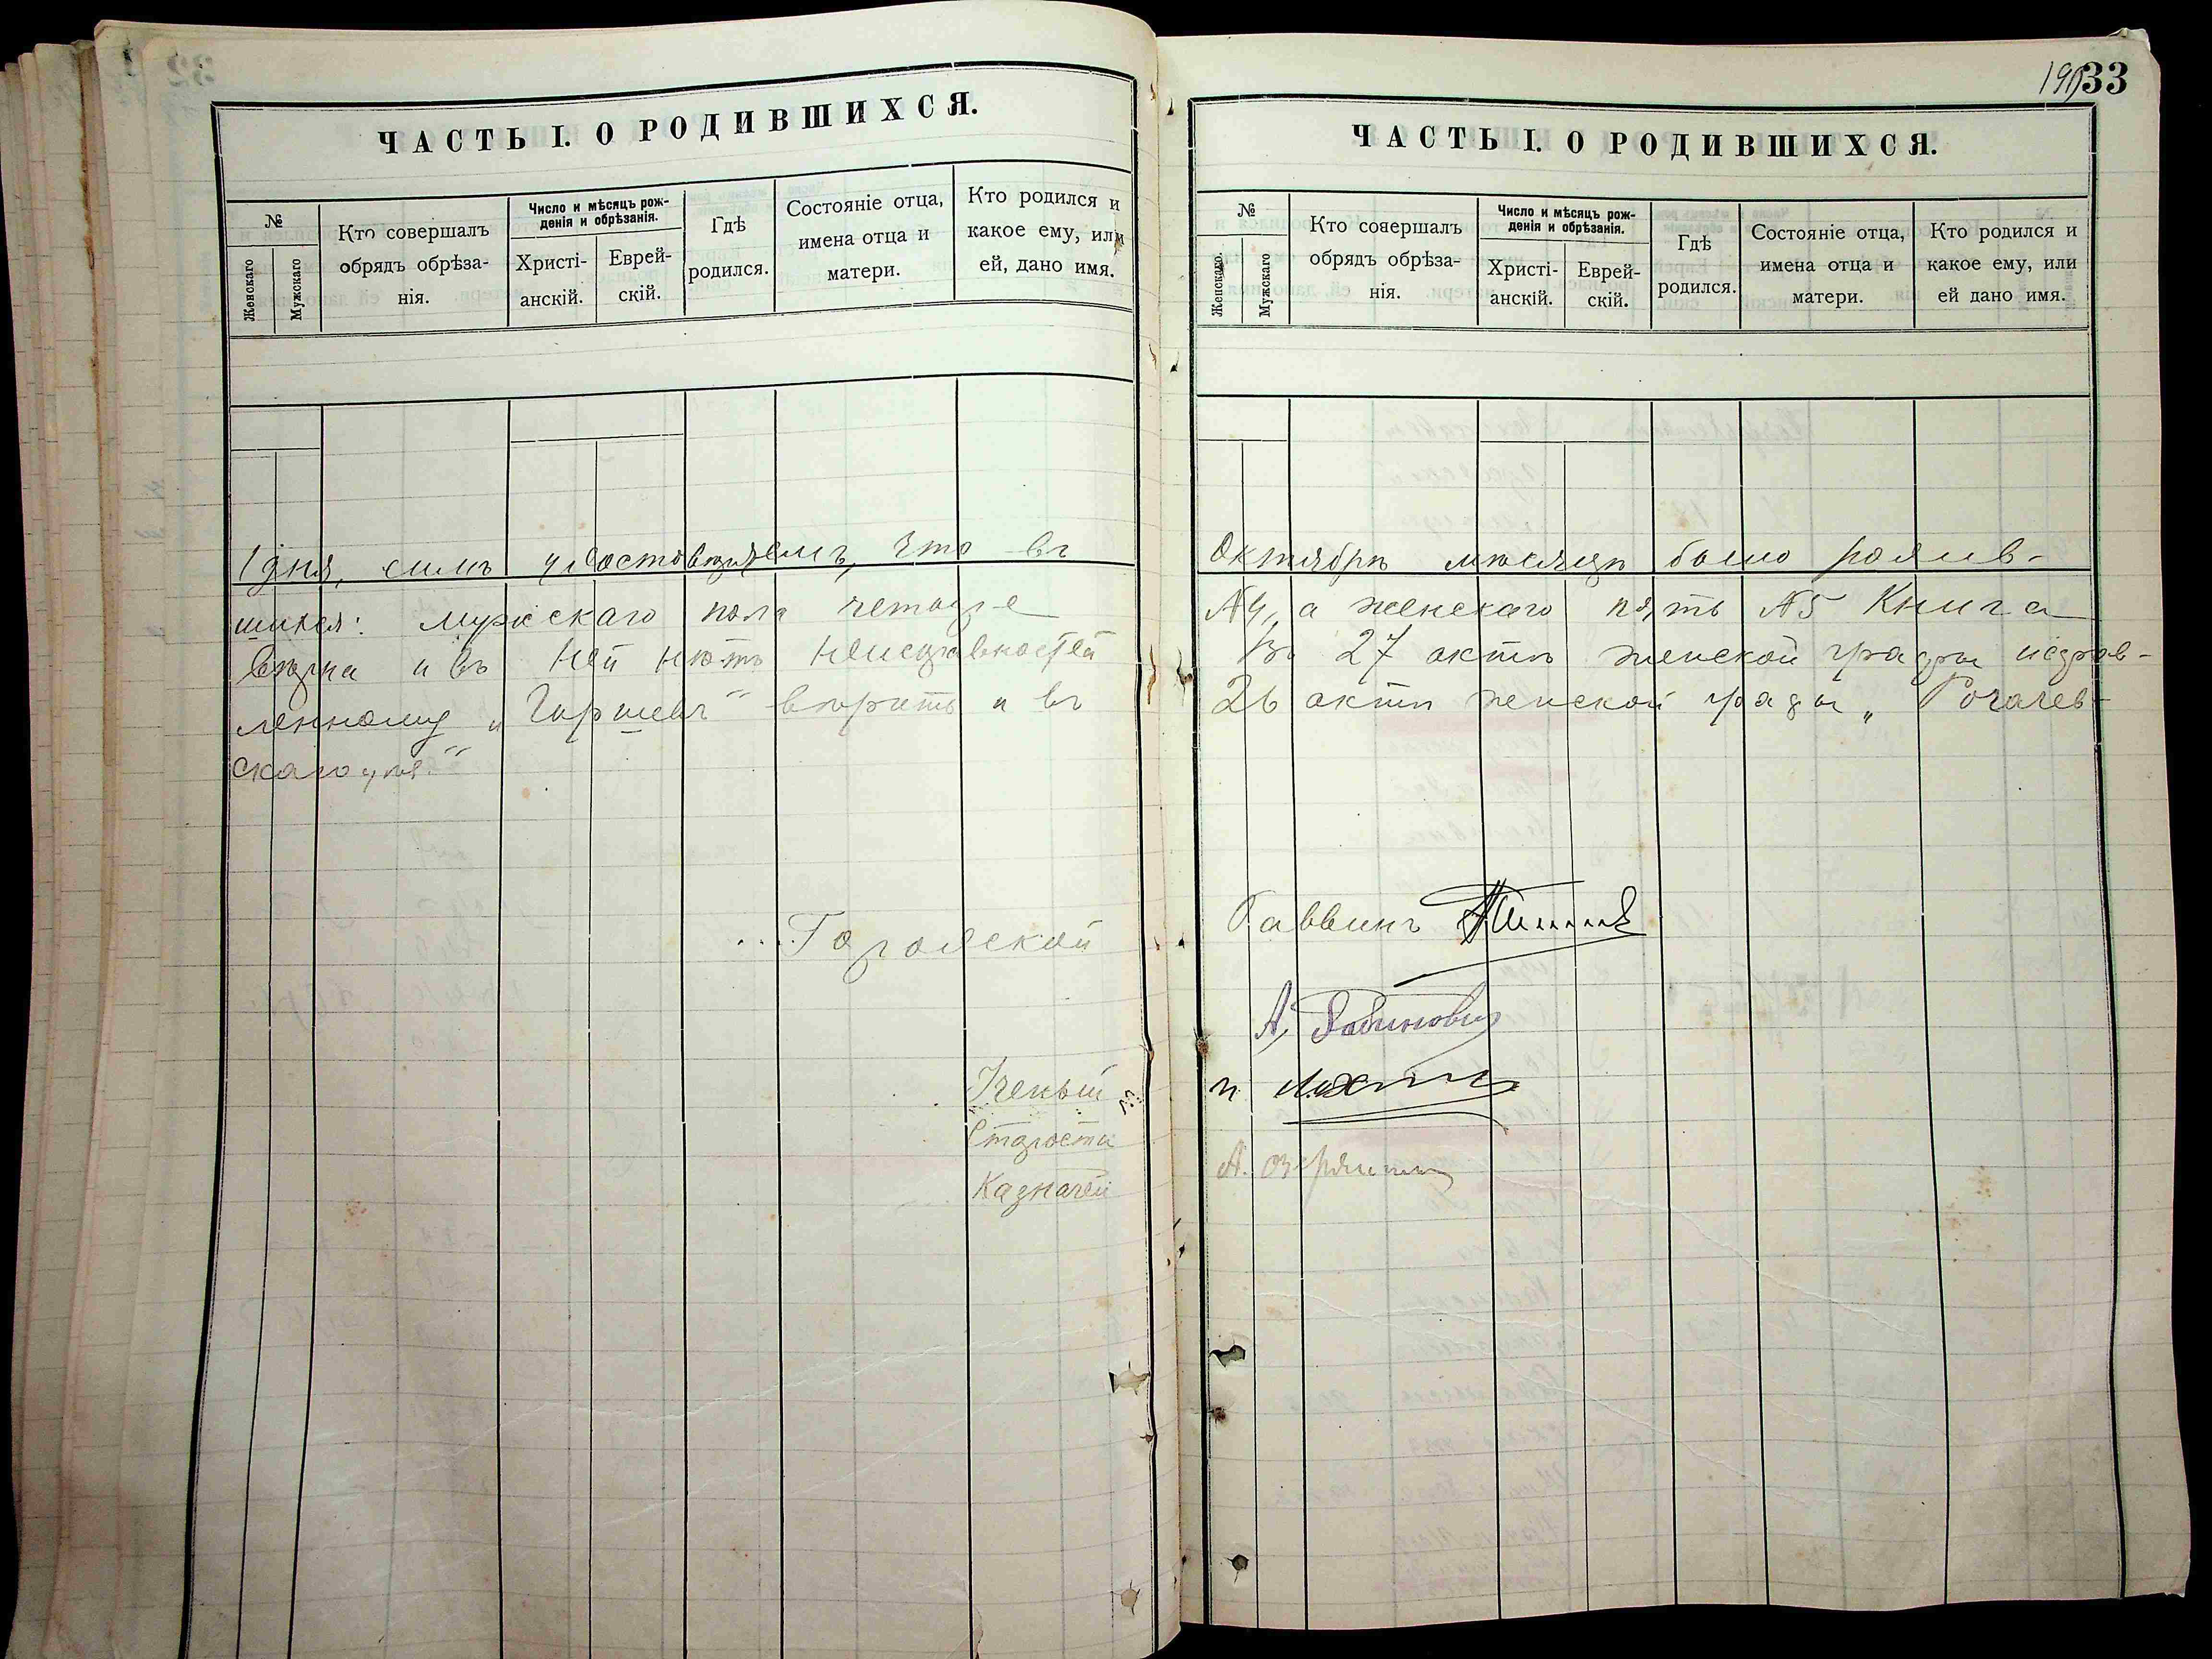 ЧАСТЬ I. О РОДИВШИХСЯ.
№
Женскаго
Мужскаго
Кто совершалъ
обрядъ обрѣза-
нія.
Число и мѣсяцъ рож-
денія и обрѣзанія.
Христі-
анскій.
Еврей-
скій.
Гдѣ
родился.
Состояніе отца,
имена отца и
матери.
Кто родился и
какое ему, или
ей, дано имя.
1 дня, симъ удостовѣряемъ, что въ
шихся: мужскаго пола четыре
вѣрна и въ ней нѣтъ неисправностей
ленному „Гиршевъ“ вѣрить и въ
скаго у.
Городской
Ученый
Староста
Казначей
33
ЧАСТЬ I. О РОДИВШИХСЯ.
№
Женскаго.
Мужскаго
Кто совершалъ
обрядъ обрѣза-
нія.
Число и мѣсяцъ рож-
денія и обрѣзанія.
Христі-
анскій.
Еврей-
скій.
Гдѣ
родился.
Состояніе отца,
имена отца и
матери.
Кто родился и
какое ему, или
ей дано имя.
Октябрѣ мѣсяцѣ было родив-
№4, а женскаго пять №5 Книга
Въ 27 актѣ женской графы исправ-
26 актѣ женской графы „Рогачев-
Раввинъ
А. Рабинович
А.